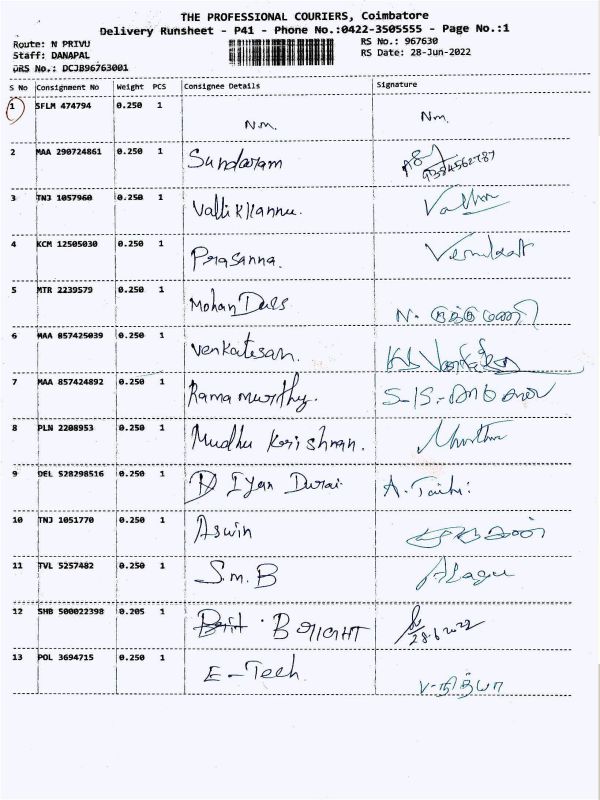 THE PROFESSIONAL COURIERS, Coimbatore
Delivery Runsheet - P41 - Phone No.:0422-3505555 - Page No.:1
Route: N PRIVU RS No.: 967630
Staff: DANAPAL RS Date: 28-Jun-2022
DRS No.: DCJB96763001
S No Consignment No Weight PCS Consignee Details Signature
1 SFLM 474794 0.250 1
Nm. Nm.
2 MAA 290724861 0.250 1 Sundaram
9384562787
3 TNJ 1057960 0.250 1 Vallikkannu.
4 KCM 12505030 0.250 1 Prasanna.
5 MTR 2239579 0.250 1 Mohan Dass
6 MAA 857425039 0.250 1 Venkatesan.
7 MAA 857424892 0.250 1 Ramamurthy.
8 PLN 2208953 0.250 1 Mudhu Krishnan.
9 DEL 528298516 0.250 1 Iyan Durai
10 TNJ 1051770 0.250 1 Aswin
11 TVL 5257482 0.250 1 S.m.B Alagu
12 SHB 500022398 0.205 1 BRIGHT
28-6-2022
13 POL 3694715 0.250 1 E-Tech.
V-நித்யா